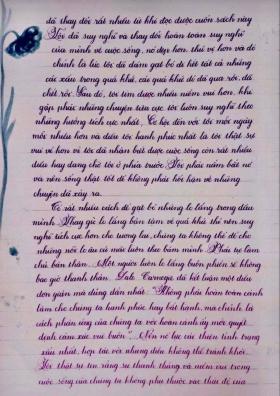 đã thay đổi rất nhiều từ khi đọc được cuốn sách này
Tôi đã suy nghĩ và thay đổi hoàn toàn suy nghĩ
của mình về cuộc sống, nó đẹp hơn, thú vị hơn và đó
chính là lúc tôi đã dám gạt bỏ đi hết tất cả những
cái xấu trong quá khứ, cái quá khứ đó đã qua rồi, đã
chết rồi. Sau đó, tôi tìm được nhiều niềm vui hơn, khi
gặp phải những chuyện tiêu cực tôi luôn suy nghĩ theo
những hướng tích cực nhất. Cơ hội đến với tôi mỗi ngày
một nhiều hơn và điều tôi hạnh phúc nhất là tôi thật sự
vui vẻ hơn vì tôi đã nhận biết được cuộc sống còn rất nhiều
điều hay đang chờ tôi ở phía trước. Tôi phải nắm bắt nó
và nên sống thật tốt để không phải hối hận về những
chuyện đã xảy ra.
Có rất nhiều cách để gạt bỏ những lo lắng trong đầu
mình. Thay vì lo lắng bận tâm về quá khứ thì nên suy
nghĩ tích cực hơn cho tương lai, chúng ta không thể để cho
những nỗi lo âu cả mãi luôn theo bám mình. Phải tự làm
chủ bản thân. Một người luôn lo lắng buồn phiền sẽ không
bao giờ thanh thản. Dale Carnegie đã kết luận một điều
đơn giản mà đúng đắn nhất: "Không phải hoàn toàn cảnh
làm cho chúng ta hạnh phúc hay bất hạnh, mà chính là
cách phản ứng của chúng ta với hoàn cảnh ấy mới quyết
định cảm xúc vui buồn"... Nên nỗ lực cải thiện tình trạng
xấu nhất, hợp tác với những điều không thể tránh khỏi.
Tôi thật sự tin rằng sự thanh thản và niềm vui trong
cuộc sống của chúng ta không phụ thuộc vào thái độ của